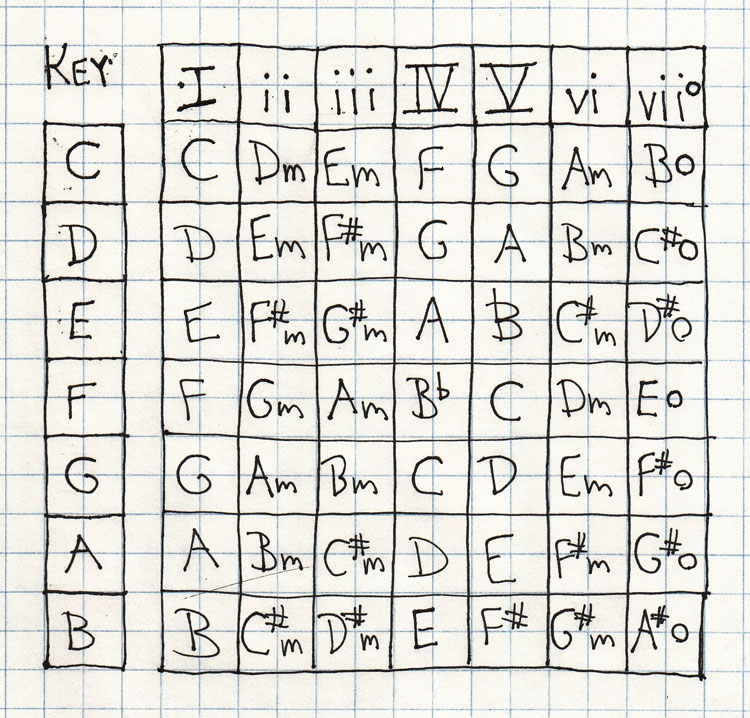 KEY I ii iii IV V vi vii°
C C Dm Em F G Am B°
D D Em F#m G A Bm C#°
E E F#m G#m A B C#m D#°
F F Gm Am B♭ C Dm E°
G G Am Bm C D Em F#°
A A Bm C#m D E F#m G#°
B B C#m D#m E F# G#m A#°